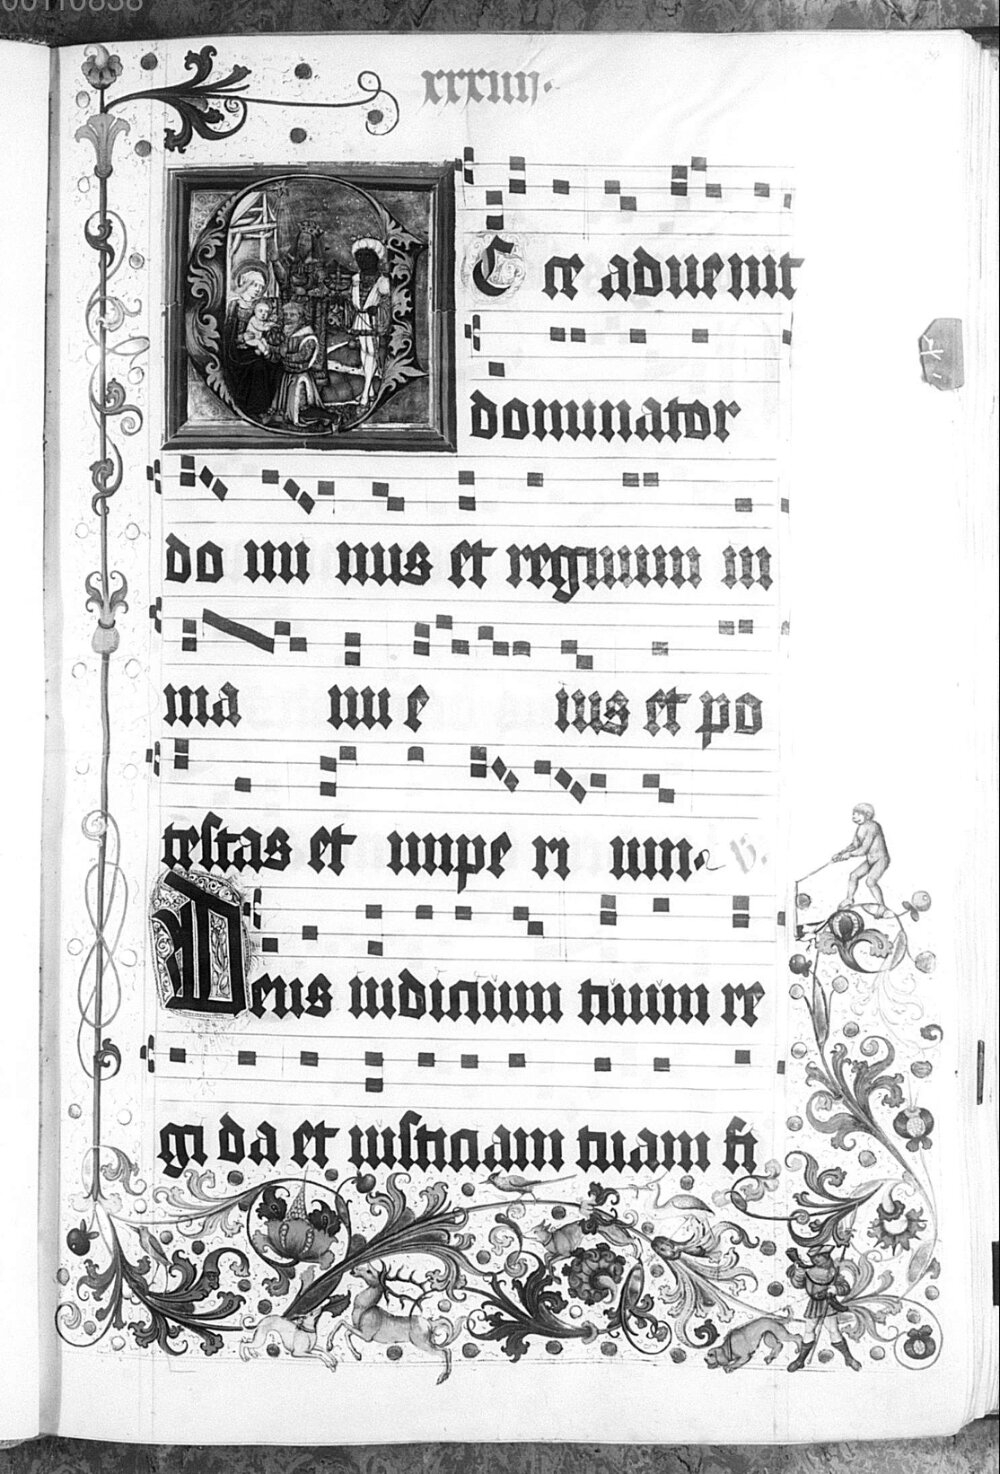 00110838
xxxiiij.
Ecce aduenit
dominator
do mi nus et regnum in
ma nu e ius et po
testas et impe ri um. V.
Deus iudicium tuum re
gi da et iusticiam tuam fi